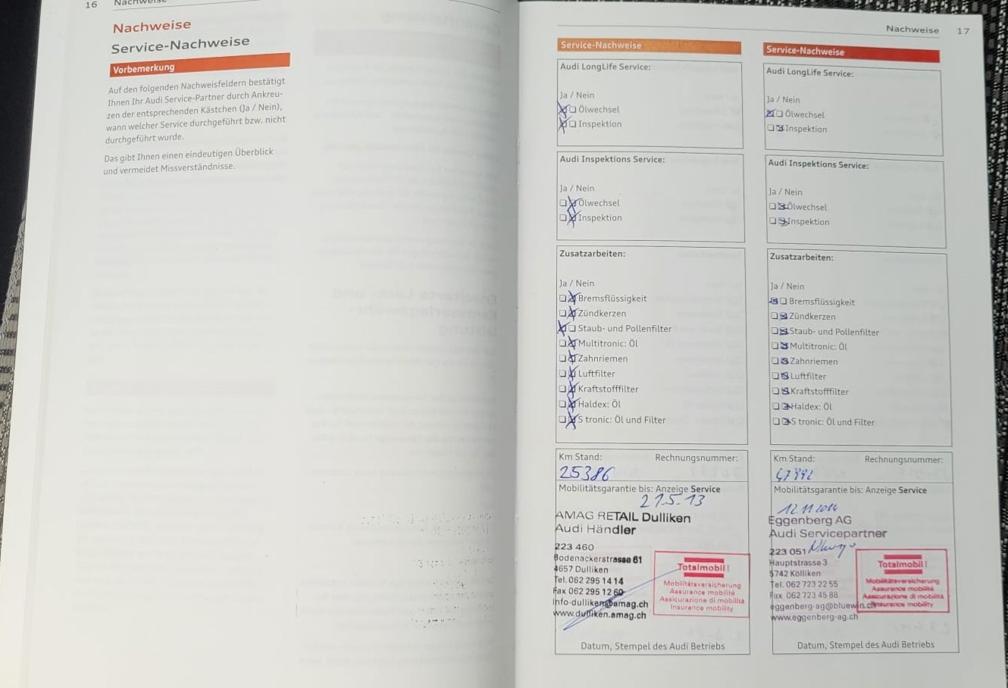 16 Nachweise
Nachweise
Service-Nachweise
Vorbemerkung
Auf den folgenden Nachweisfeldern bestätigt
Ihnen Ihr Audi Service-Partner durch Ankreu-
zen der entsprechenden Kästchen (Ja / Nein),
wann welcher Service durchgeführt bzw. nicht
durchgeführt wurde.
Das gibt Ihnen einen eindeutigen Überblick
und vermeidet Missverständnisse.
Nachweise 17
Service-Nachweise
Audi LongLife Service:
Ja / Nein
Ölwechsel
Inspektion
Audi Inspektions Service:
Ja / Nein
Ölwechsel
Inspektion
Zusatzarbeiten:
Ja / Nein
Bremsflüssigkeit
Zündkerzen
Staub- und Pollenfilter
Multitronic: Öl
Zahnriemen
Luftfilter
Kraftstofffilter
Haldex: Öl
S tronic: Öl und Filter
Km Stand: Rechnungsnummer:
25386
Mobilitätsgarantie bis: Anzeige Service
21.5.13
AMAG RETAIL Dulliken
Audi Händler
223 460
Bodenackerstrasse 61
4657 Dulliken
Tel. 062 295 14 14
Fax 062 295 12 60
info-dulliken@amag.ch
www.dulliken.amag.ch
Totalmobil!
Mobilitätsversicherung
Assurance mobilité
Assicurazione di mobilità
Insurance mobility
Datum, Stempel des Audi Betriebs
Service-Nachweise
Audi LongLife Service:
Ja / Nein
Ölwechsel
Inspektion
Audi Inspektions Service:
Ja / Nein
Ölwechsel
Inspektion
Zusatzarbeiten:
Ja / Nein
Bremsflüssigkeit
Zündkerzen
Staub- und Pollenfilter
Multitronic: Öl
Zahnriemen
Luftfilter
Kraftstofffilter
Haldex: Öl
S tronic: Öl und Filter
Km Stand: Rechnungsnummer:
Mobilitätsgarantie bis: Anzeige Service
12 11 2014
Eggenberg AG
Audi Servicepartner
223 051
Hauptstrasse 3
5742 Kölliken
Tel. 062 723 22 55
Fax 062 723 45 88
eggenberg-ag@bluewin.ch
www.eggenberg-ag.ch
Totalmobil!
Mobilitätsversicherung
Assurance mobilité
Assicurazione di mobilità
Insurance mobility
Datum, Stempel des Audi Betriebs